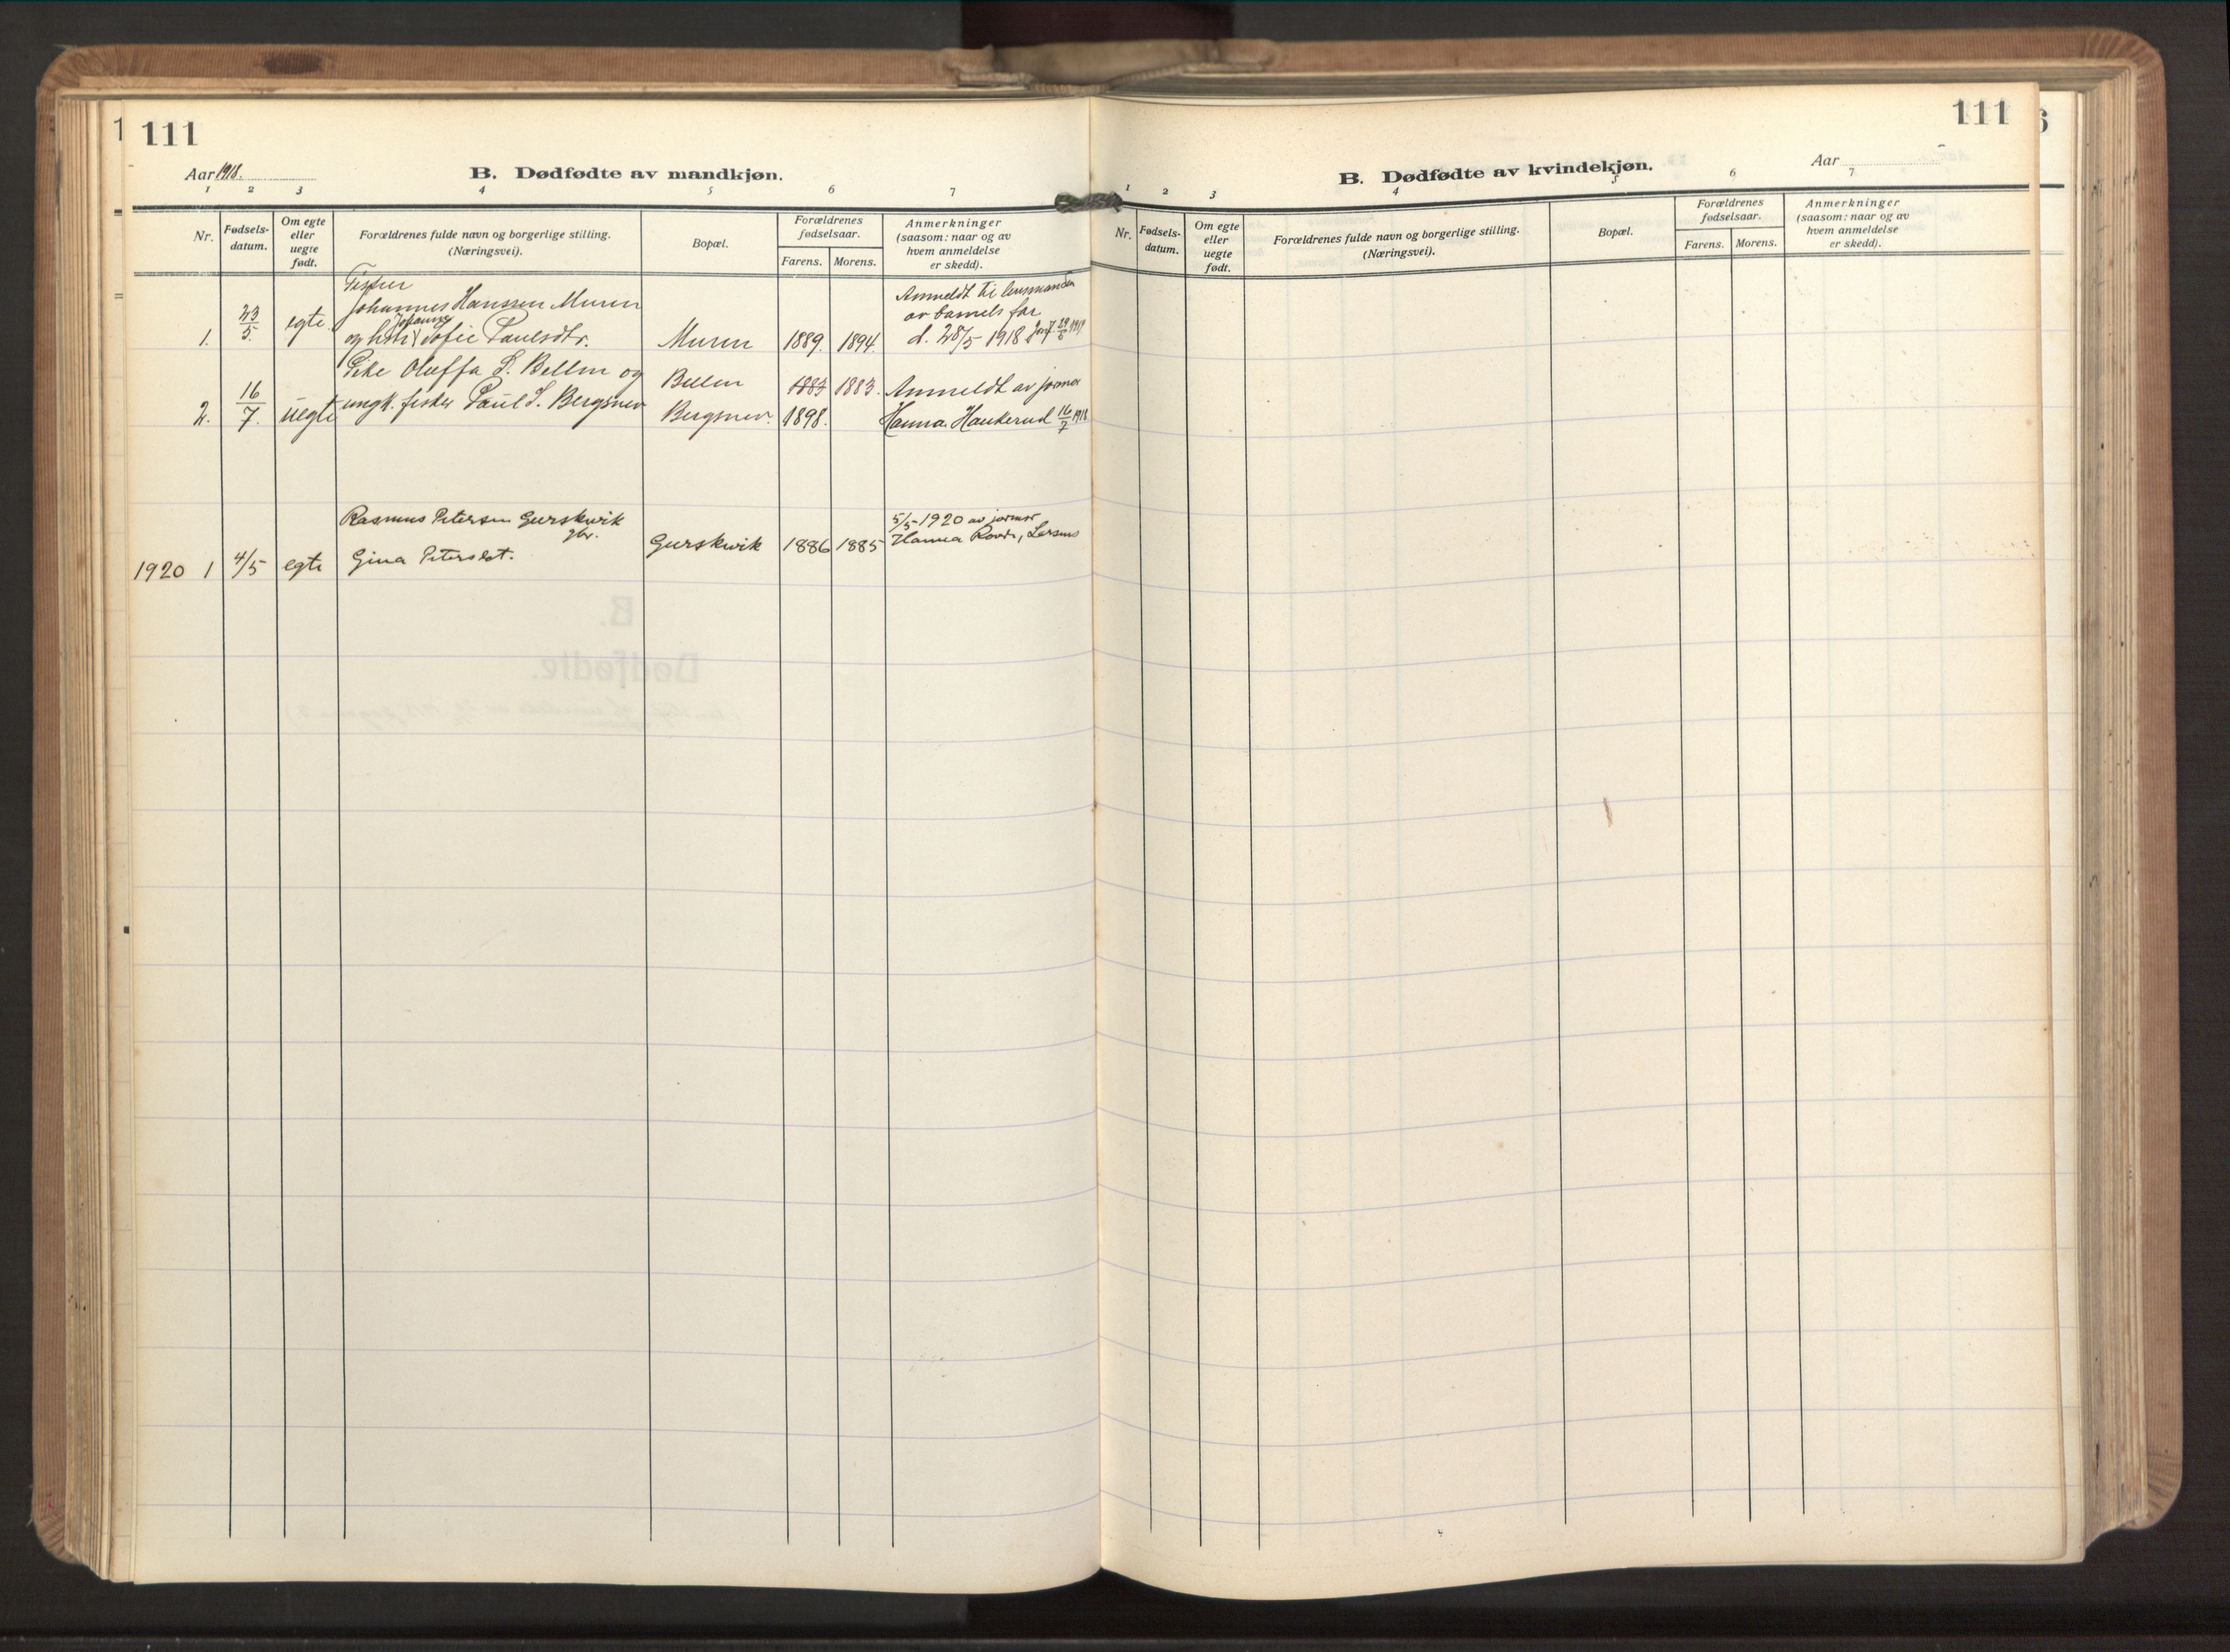 111
Aar 1918.
B. Dødfødte av mandkjøn.
1 2 3 4 5 6 7
Nr.
Fødsels-
datum.
Om egte
eller
uegte
født.
Forældrenes fulde navn og borgerlige stilling.
(Næringsvei).
Bopæl.
Forældrenes
fødselsaar.
Farens. Morens.
Anmerkninger
(saasom: naar og av
hvem anmeldelse
er skedd).
1.
23/5.
egte.
Fisker
Johannes Hanssen Muren
Johanne
og hstr Sofie Paulsdtr.
Muren
1889. 1894.
Anmeldt til lensmanden
av barnets far
d. 28/5 1918
2.
16/7.
uegte
Pike Oluffa S. Bellen og
ungk. fisker Paul S. Bergsnev
Bellen
Bergsnev.
1883 1883.
1898.
Anmeldt av jormor
Hanna Haukerud 16/7 1918
1920 1
4/5
egte
Rasmus Petersen Gurskvik
gbr.
Gina Petersdt.
Gurskvik
1886 1885
5/5-1920 av jormor
Hanna Rovde, Larsnes
B.
Dødfødte.
111
Aar
B. Dødfødte av kvindekjøn.
1 2 3 4 5 6 7
Nr.
Fødsels-
datum.
Om egte
eller
uegte
født.
Forældrenes fulde navn og borgerlige stilling.
(Næringsvei).
Bopæl.
Forældrenes
fødselsaar.
Farens. Morens.
Anmerkninger
(saasom: naar og av
hvem anmeldelse
er skedd).